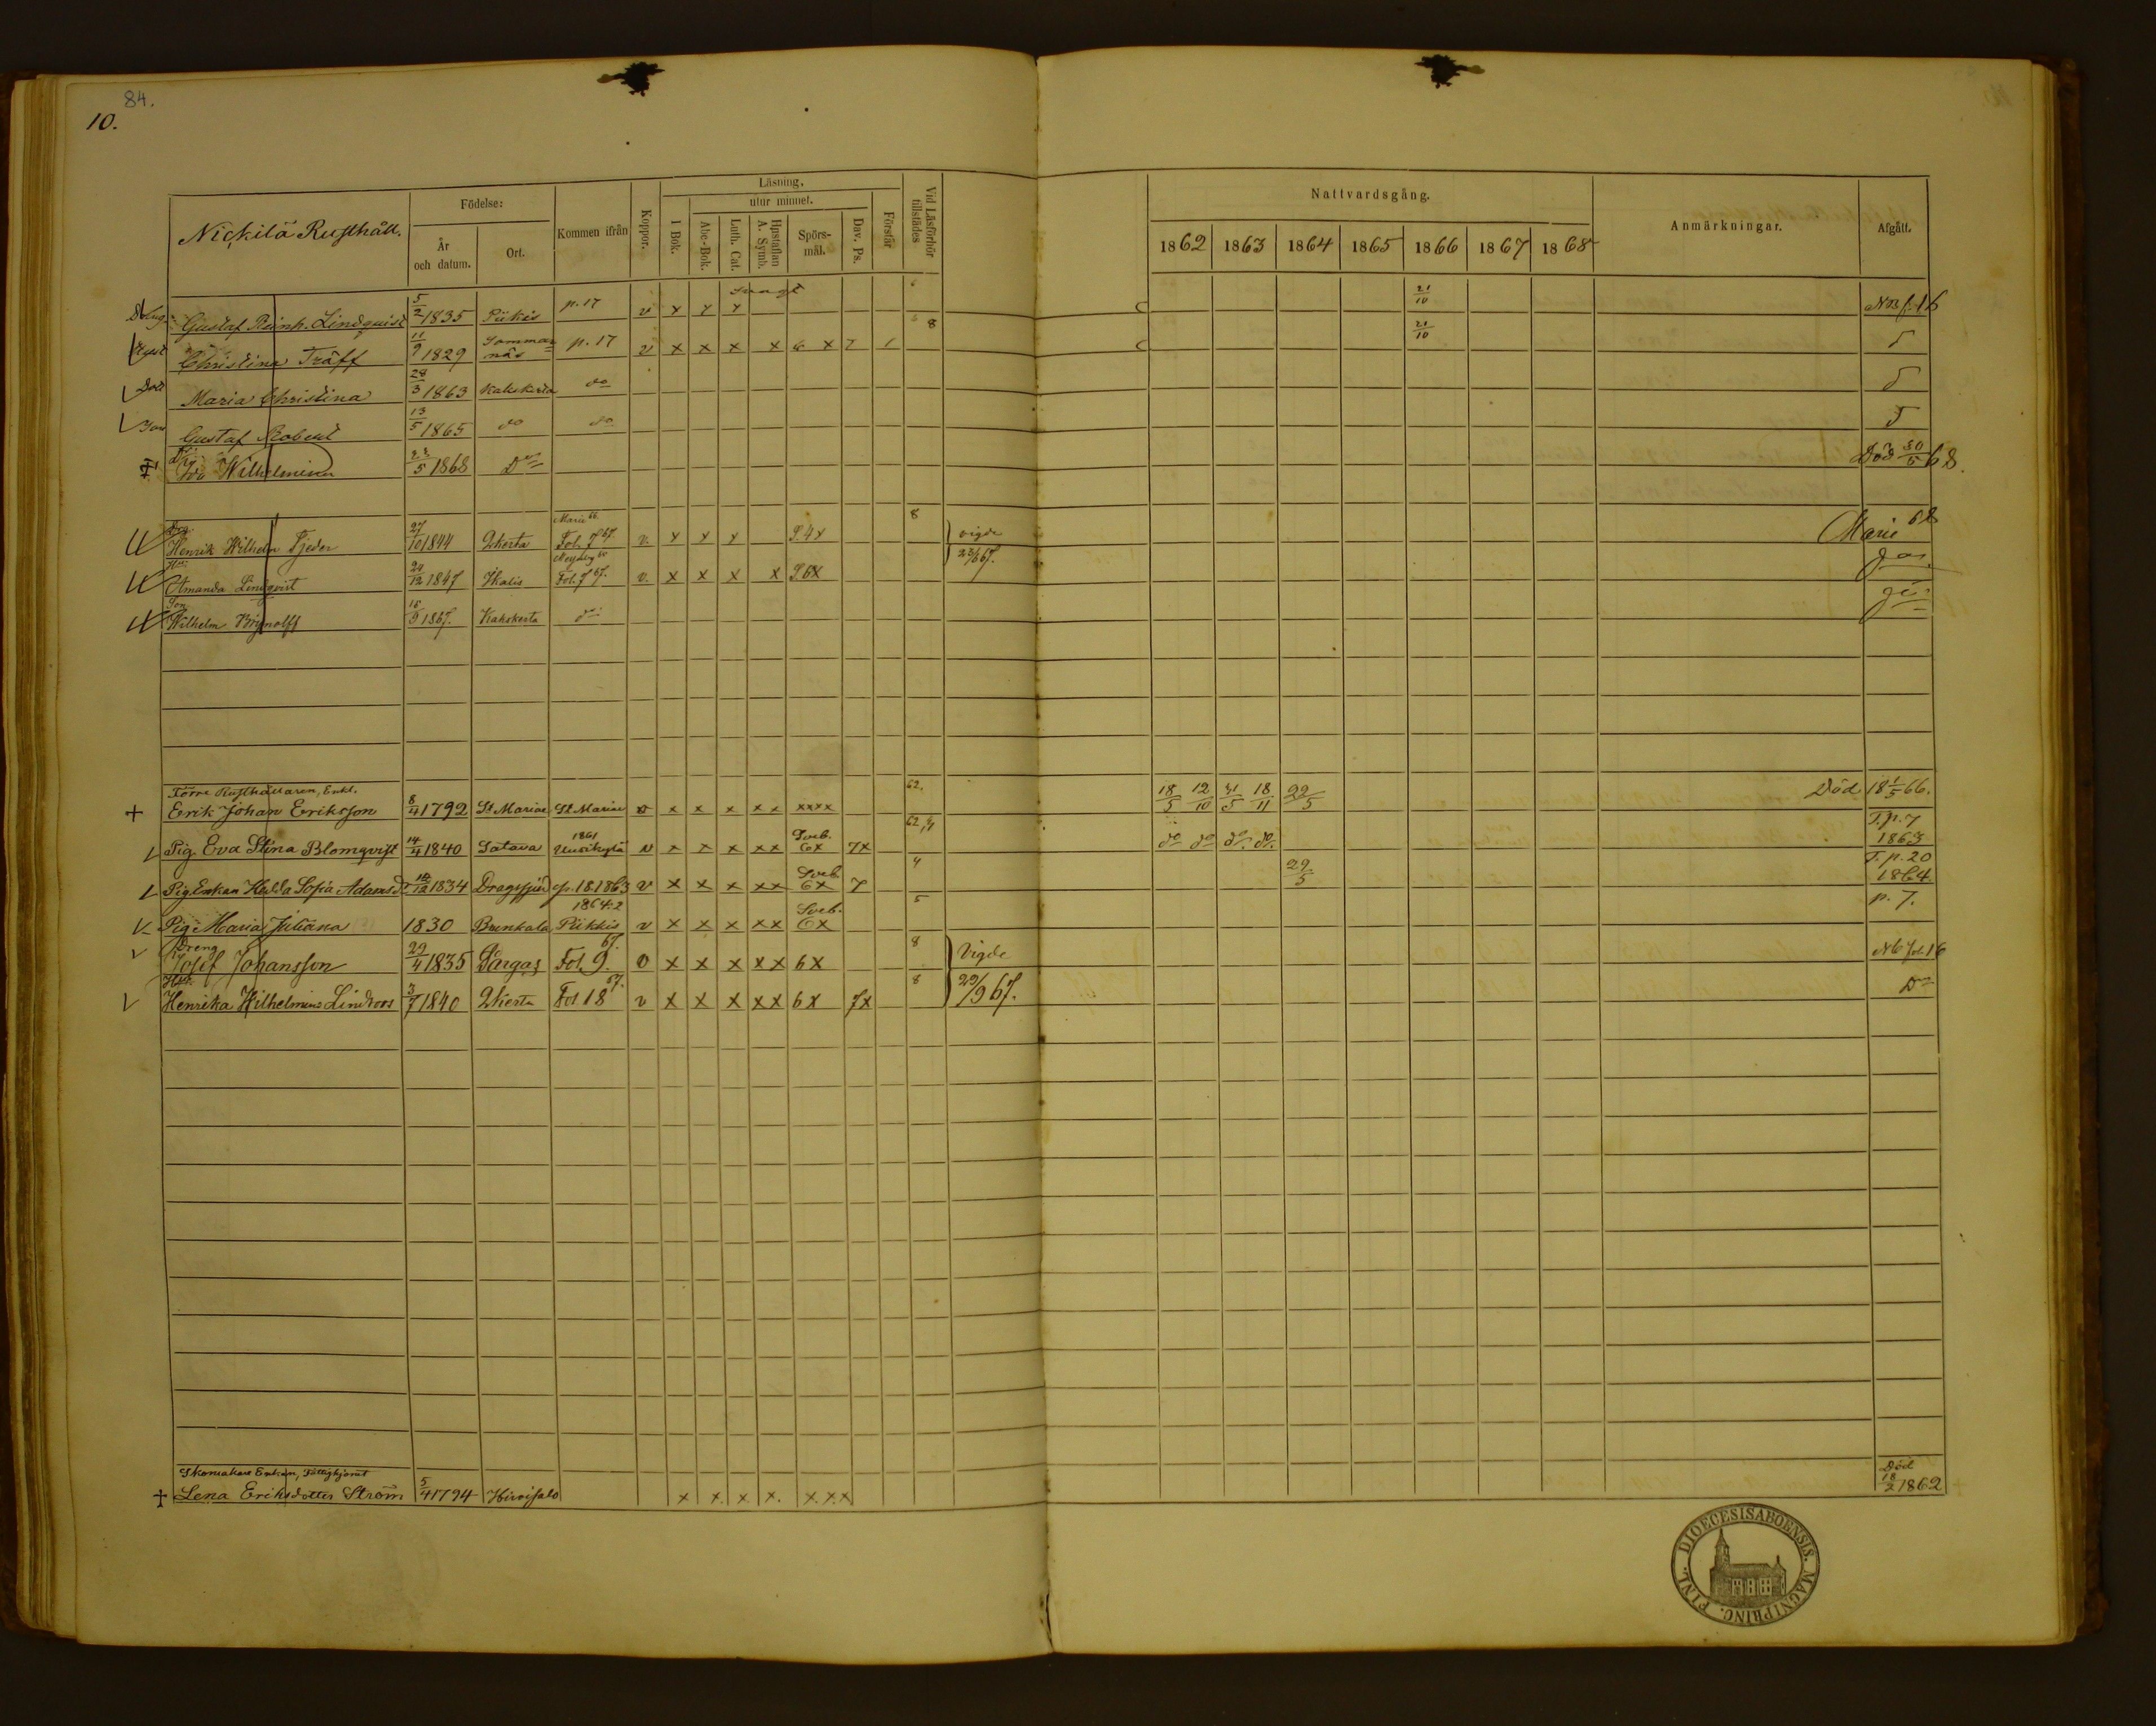 84.
10.
Nickilä Rusthåll.
Födelse:
År och datum.
Ort.
Kommen ifrån
Koppor.
Läsning.
I Bok.
utur minnet.
Abc-Bok.
Luth. Cat.
Hustaflan A. Symb.
Spörs-mål.
Dav. Ps.
Förstår
Vid Läsförhör tillstädes
Nattvardsgång.
1862 1863 1864 1865 1866 1867 1868
Anmärkningar.
Afgått.
Gustaf Reinh. Lindquist 5/2 1835 Piikis p. 17 v x x x 21/10
Christina Träff 11/9 1829 Sommarnäs p. 17 v x x x x 6 x 7 8 21/10
Dott Maria Christina 28/3 1863 Kakskerta do
Son Gustaf Robert 13/5 1865 do do
Ida Wilhelmina 23/5 1868 Do Död 30/5 68.
Henrik Wilhelm Tjeder 27/10 1844 Marie 66. Fol. 7 67. v. x x x 8 vigde Marie 68
Amanda Lindqvist 1847 Fol. 7 67. v. x x x x
Son
Wilhelm Brynolff 1867. Kakskerta do
Förre Rusthållaren, Enkl.
Erik Johan Eriksson 8/4 1792 St Marine St Marine v x x x x x xxxx 62. 18/5 12/10 31/5 18/11 22/5 Död 18 1/5 66.
Pig. Eva Stina Blomqvist 14/4 1840 Satava 1861 v x x x x x Sveb. 6x 7x do do do do. T. p. 7 1863
Pig Enkan Hulda Sofia Adamsd. 1834 Dragsfjärd p. 18. 1863 v x x x x x Sveb. 6x 7 4 22/5 T. p. 20 1864.
Pig. Maria Juliana 1830 Brunkala 1864:2 Piikkis v x x x x x Sveb. 6x 5 p. 7.
Dreng
Josef Johansson 29/4 1835 Pargas Fol. 9. 67. v x x x x x 6x 8 Vigde
Henrika Wilhelmina Lindroos 3/7 1840 Fol 18 67. v x x x x x 6x 7x 8 29/9 67. Do
Skomakare Enkan, Fattighjonet
Lena Eriksdotter Ström 5/4 1794 Hirvisalo x x. x x. x.x.x Död 18/2 1862
FINL. DIOECESIS ABOENSIS. MAGNI PRINC.